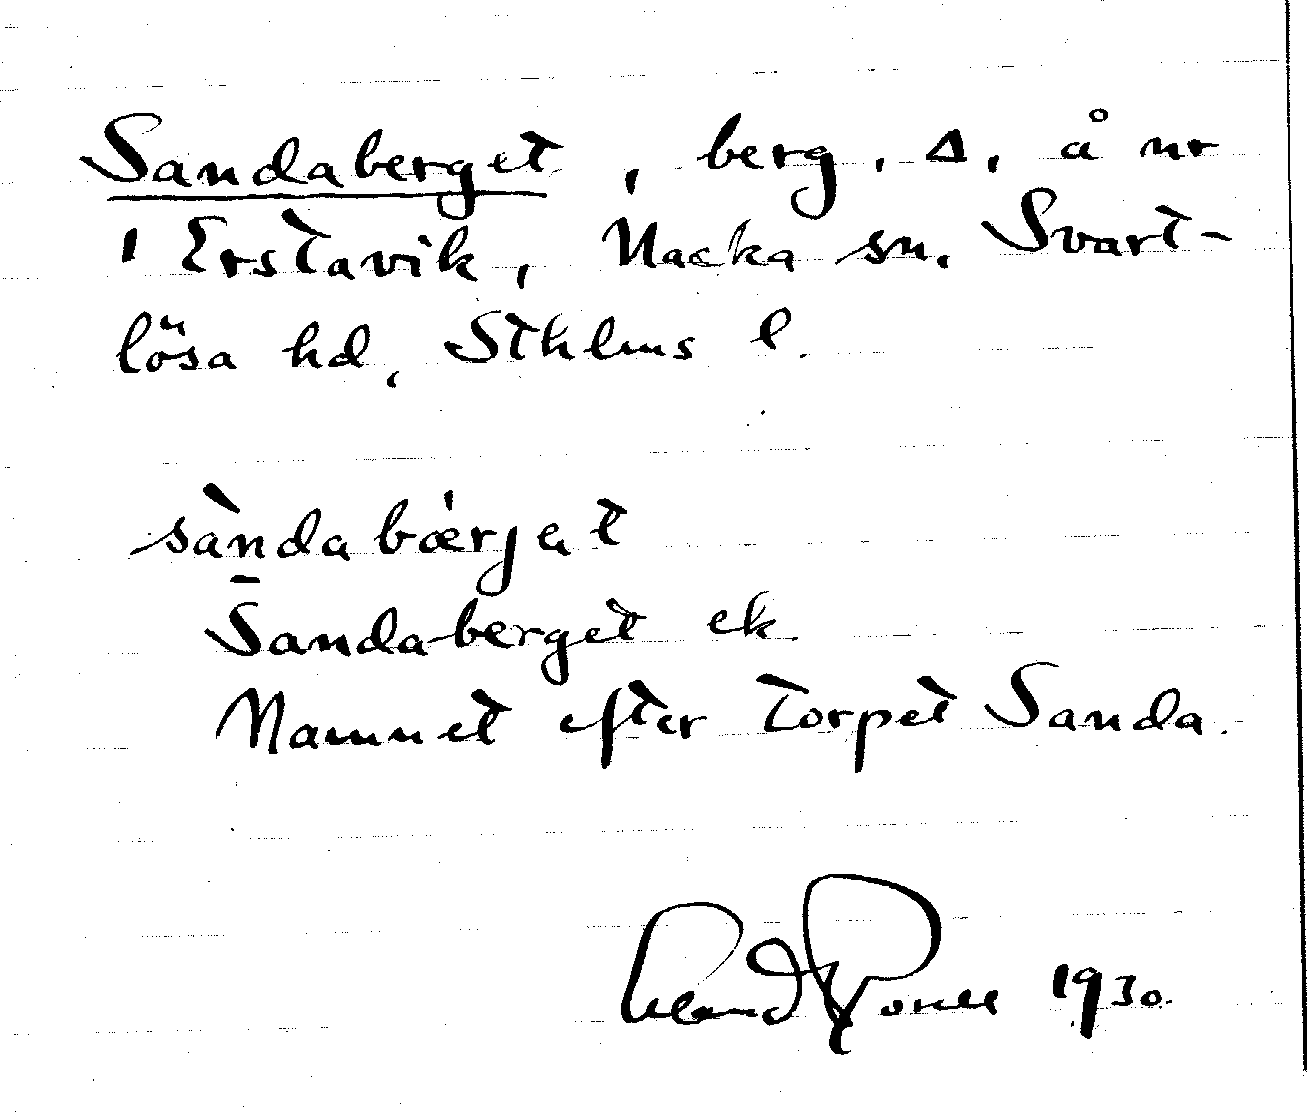 Sandaberget, berg, Δ, å nr
1 Erstavik, Nacka sn. Svart-
lösa hd, Sthlms l.
sàndabærjet
Sandaberget ek.
Namnet efter torpet Sanda.
1930.